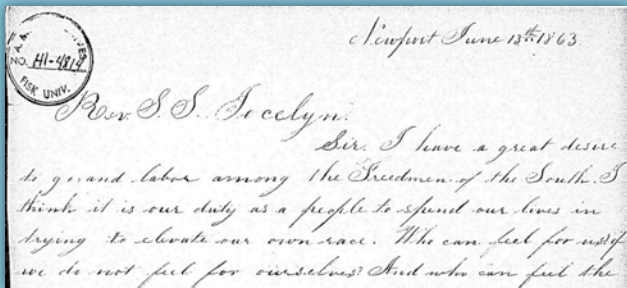 NO. H1-4814
FISK UNIV.
Newport June 13th 1863.
Rev. S. S. Jocelyn.
Sir. I have a great desire
to go and labor among the Freedmen of the South. I
think it is our duty as a people to spend our lives in
trying to elevate our own race. Who can feel for us if
we do not feel for ourselves? And who can feel the